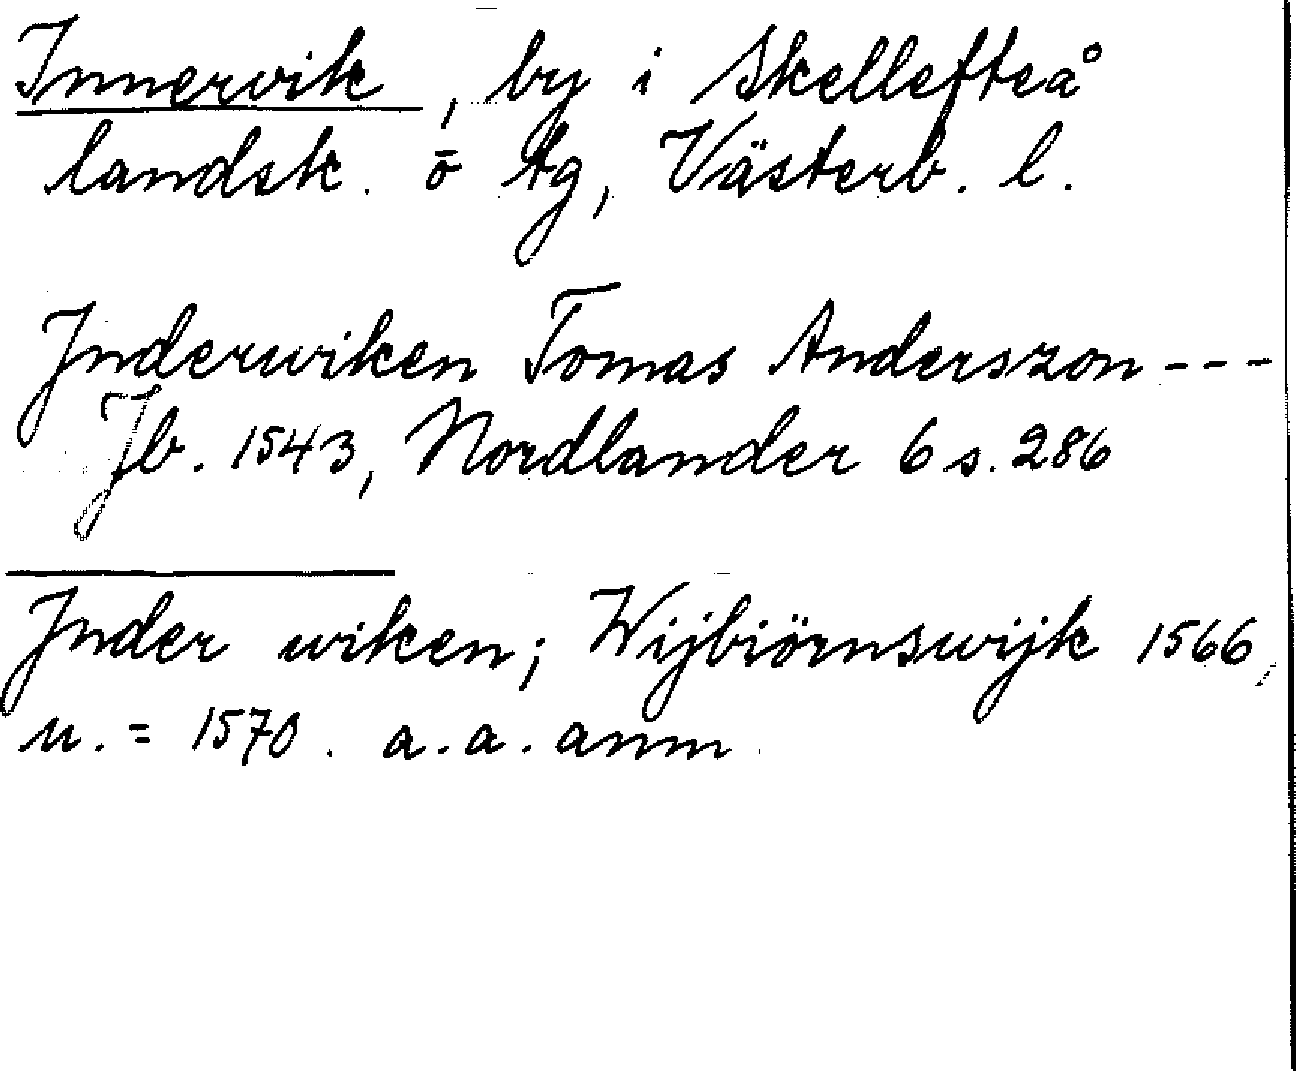 Innervik, by i Skellefteå
landsk. ö tg, Västerb. l.
Jnderwiken Tomas Anderszon ---
Jb. 1543, Nordlander 6 s. 286
Jnder wiken; Wijbiörnswijk 1566,
u. = 1570. a.a. anm.